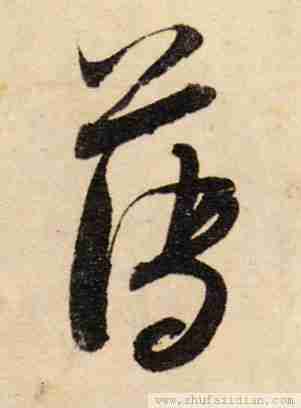 薄
www.zhufazidian.com